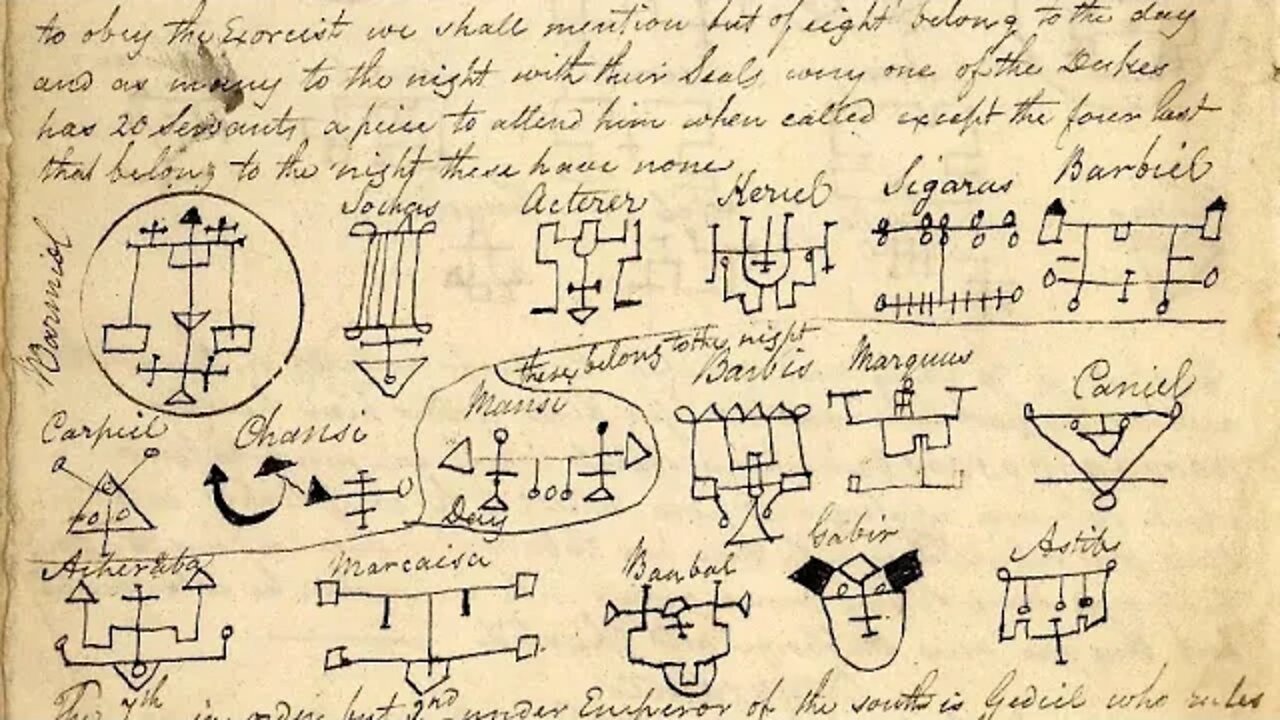 to obey the Exorcist we shall mention but of eight belong to the day
and as many to the night with their Seals every one of the Dukes
has 20 Servants, a piece to attend him when called except the four last
that belong to the night these have none
Barmiel
Sochas
Acterer
Keriel
Sigarus
Barbiel
these belong to the night
Carpiel
Chansi
Mansi
Day
Barbis
Marguus
Caniel
Acheraba
Marcaisa
Baabal
Gabir
Astib
The 7th in order but 2nd under Emperor of the south is Gediel who rules